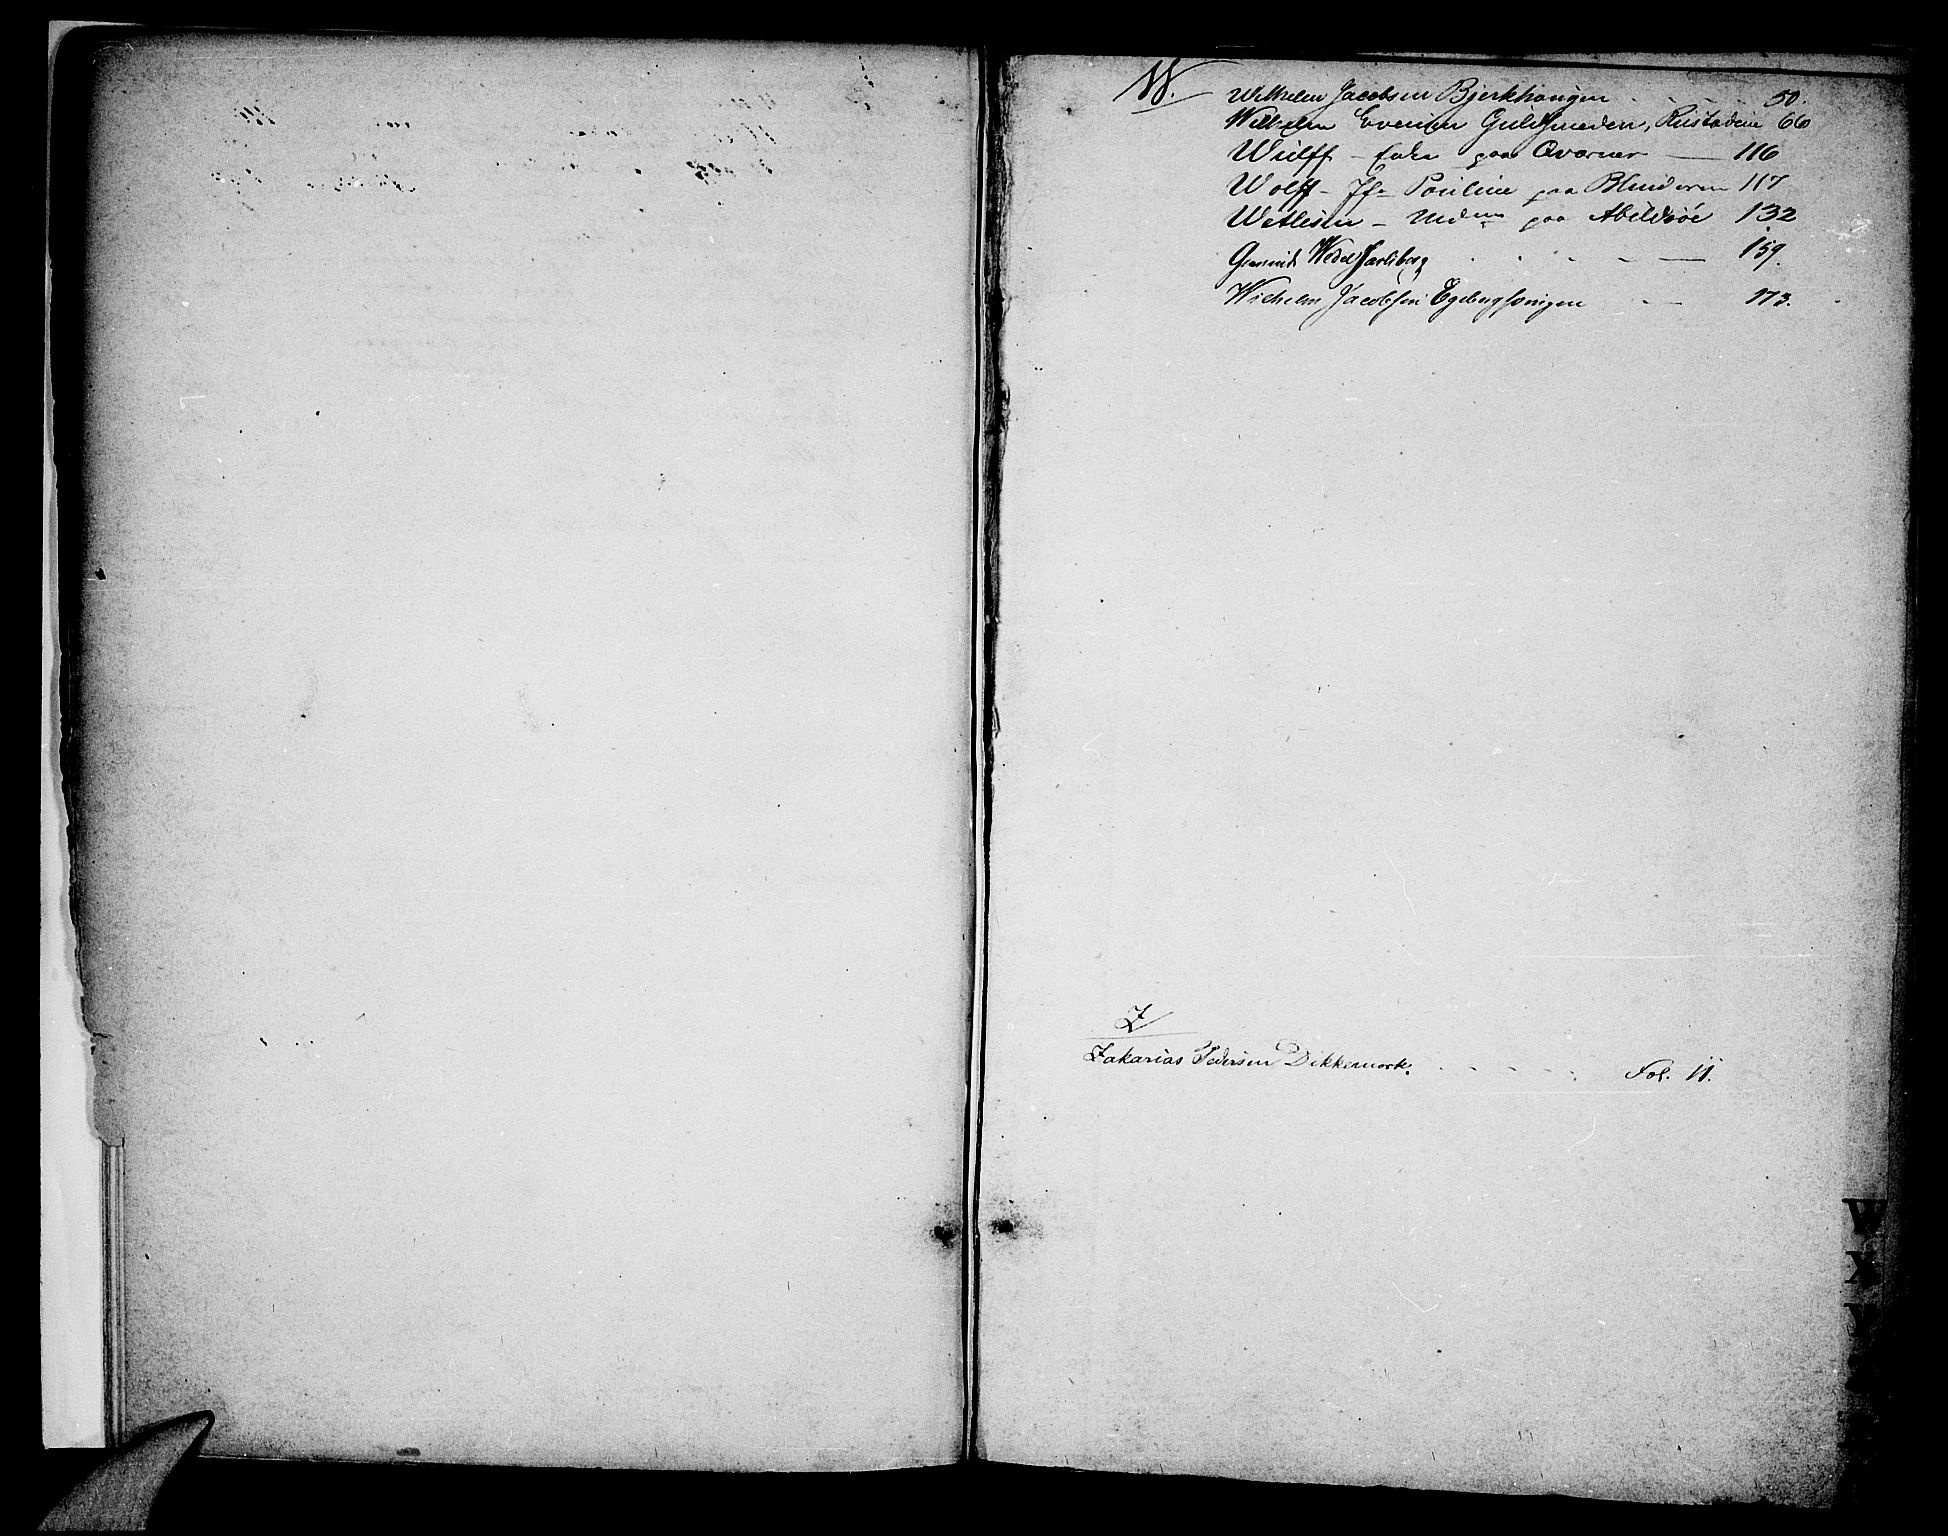 W.
Wilhelm Jacobsen Bjerkhangen 50.
Wilhelm Evensen Guldsmeden, Rustadeie 66
Wulff - Enke paa Qværner — 116
Wolff - Jfr Pouline paa Blinderen 117
Wetlesen - paa Abildsøe 132
Wedel Jarlsberg — 159.
Wilhelm Jacobsen 173.
Z
Zakarias Pedersen Dikkemark. Fol. 11.
W
X
Y